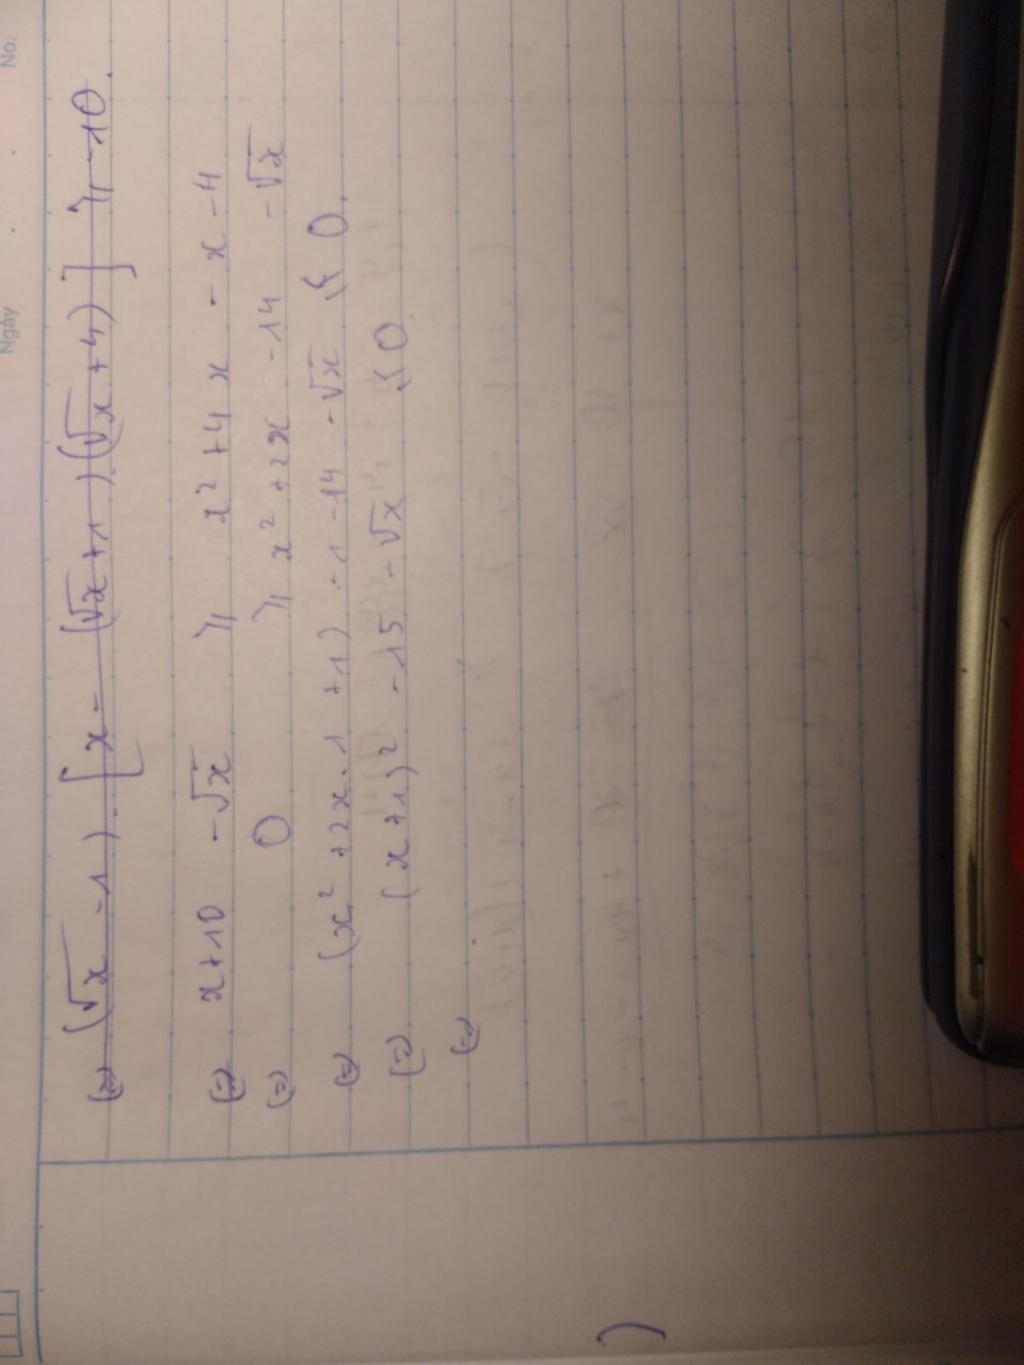 No.
Ngày
(=) (√x - 1). [x - (√x + 1).(√x + 4)] ⩾ -10.
(=) x + 10 - √x ⩾ x² + 4x - x - 4
(=) 0 ⩾ x² + 2x - 14 - √x
(=) (x² + 2x.1 + 1) - 1 - 14 - √x ⩽ 0.
(=) (x + 1)² - 15 - √x ⩽ 0
(=)
)